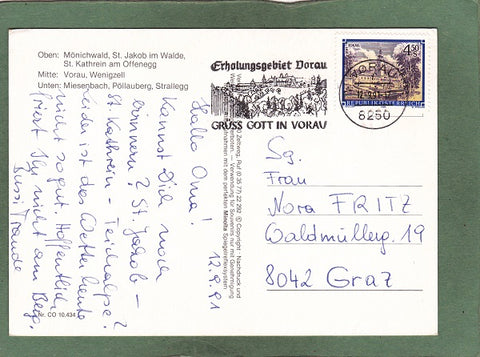 Oben: Mönichwald, St. Jakob im Walde,
St. Kathrein am Offenegg
Mitte: Vorau, Wenigzell
Unten: Miesenbach, Pöllauberg, Strallegg
Erholungsgebiet Vorau
GRÜSS GOTT IN VORAU
VORAU
8250
4.50
REPUBLIK ÖSTERREICH
12.9.91
Hallo Oma!
Kannst Dich noch
erinnern? St. Jakob -
St. Kathrein - Teichalpe?
Leider ist das Wetter heute
nicht so gut. Hoffentlich
friert Ihr nicht am Berg.
Bussi Traude
Sg.
Frau
Nora FRITZ
Waldmüllerg. 19
8042 Graz
Nr. CO 10,434